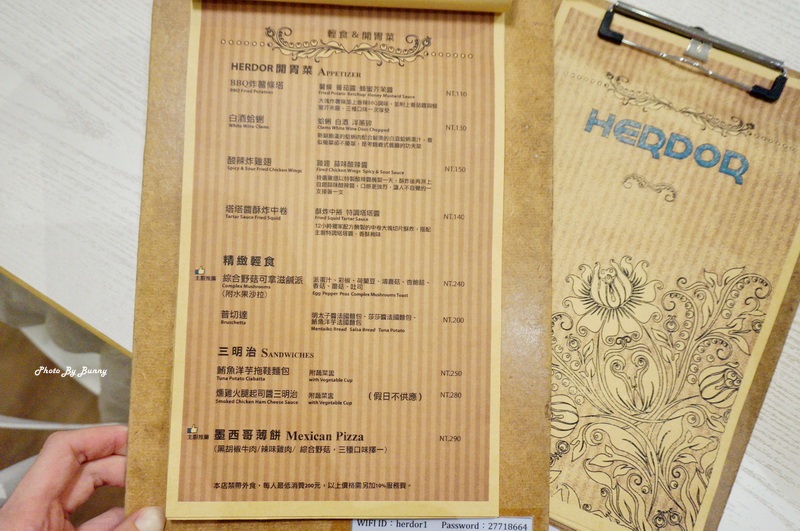 輕食 & 開胃菜
HERDOR 開胃菜 APPETIZER
BBQ炸薯條塔 薯條 番茄醬 蜂蜜芥茉醬 NT.110
BBQ Fried Potatoes Fried Potato Ketchup Honey Mustard Sauce
白酒蛤蜊 蛤蜊 白酒 洋蔥碎 NT.130
White Wine Clams Clams White Wine Oion Chopped
酸辣炸雞翅 雞翅 蒜味酸辣醬 NT.150
Spicy & Sour Fried Chicken Wings Fired Chicken Wings Spicy & Sour Sauce
塔塔醬酥炸中卷 酥炸中捲 特調塔塔醬 NT.140
Tartar Sauce Fried Squid Fried Squid Tartar Sauce
精緻輕食
主廚推薦 綜合野菇可拿滋鹹派 NT.240
Complex Mushrooms
(附水果沙拉) Egg Pepper Peas Complex Mushrooms Toast
普切達 明太子醬法國麵包、莎莎醬法國麵包、 NT.200
鮪魚洋芋法國麵包
Bruschette Mentaiko Bread Salsa Bread Tuna Potato
三明治 SANDWICHES
鮪魚洋芋拖鞋麵包 附蔬菜盅 NT.250
Tuna Potato Ciabatta with Vegetable Cup
燻雞火腿起司醬三明治 附蔬菜盅 (假日不供應) NT.280
Smoked Chicken Ham Cheese Sauce with Vegetable Cup
主廚推薦 墨西哥薄餅 Mexican Pizza NT.290
(黑胡椒牛肉/辣味雞肉/ 綜合野菇，三種口味擇一)
本店禁帶外食，每人最低消費200元，以上價格需另加10%服務費。
WIFI ID：herdor1 Password：27718664
HERDOR
Photo By Bunny